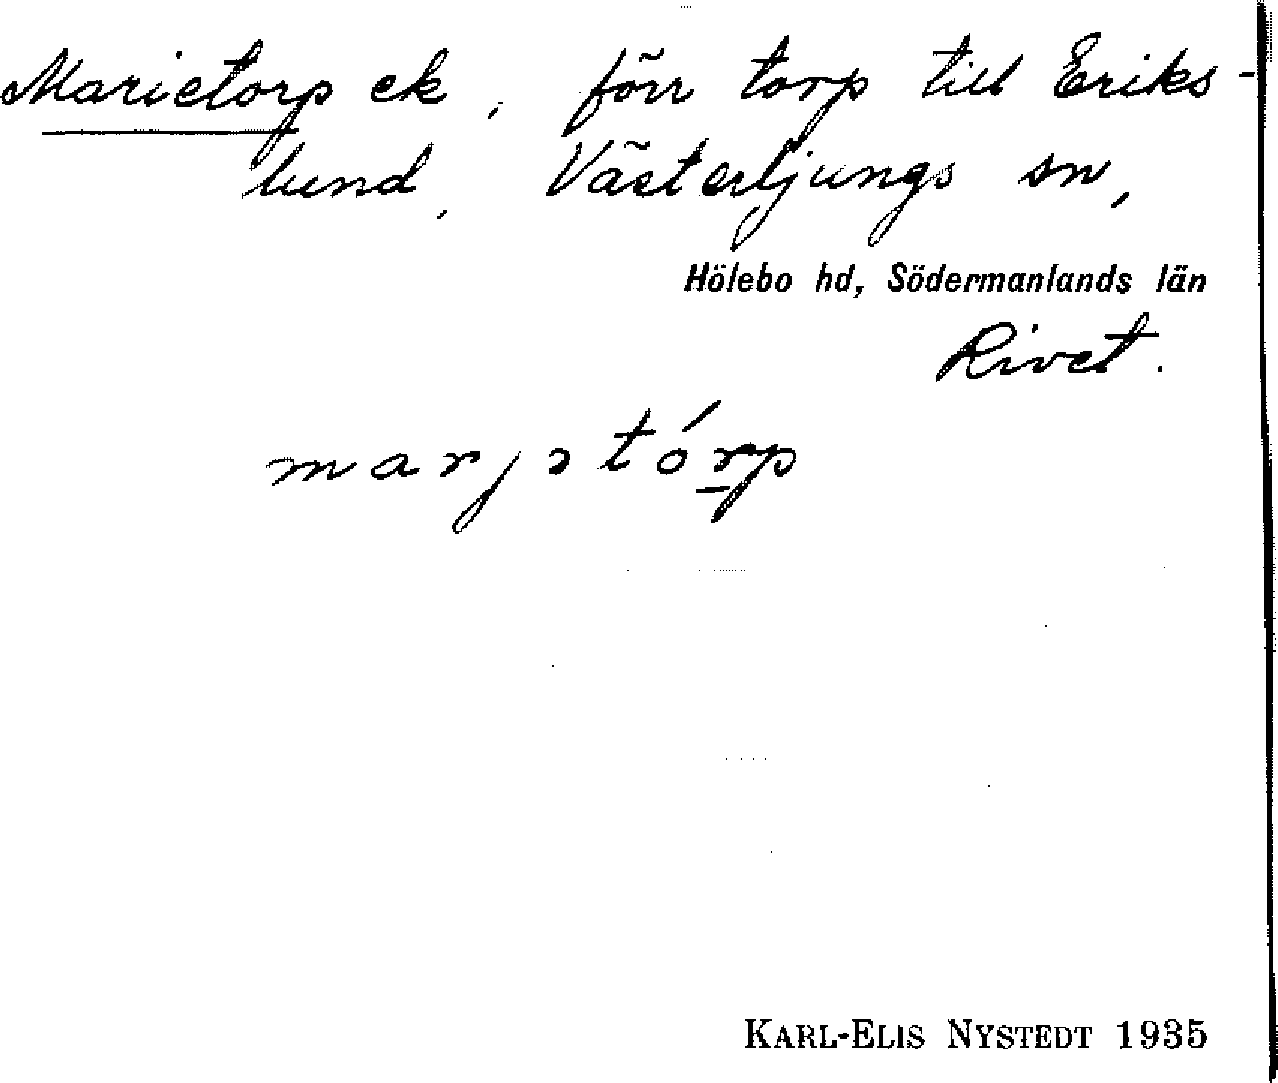 Marietorp ek, förr torp till Eriks-
lund, Västerljungs sn,
Hölebo hd, Södermanlands län
Rivet.
marjɔtórp
KARL-ELIS NYSTEDT 1935